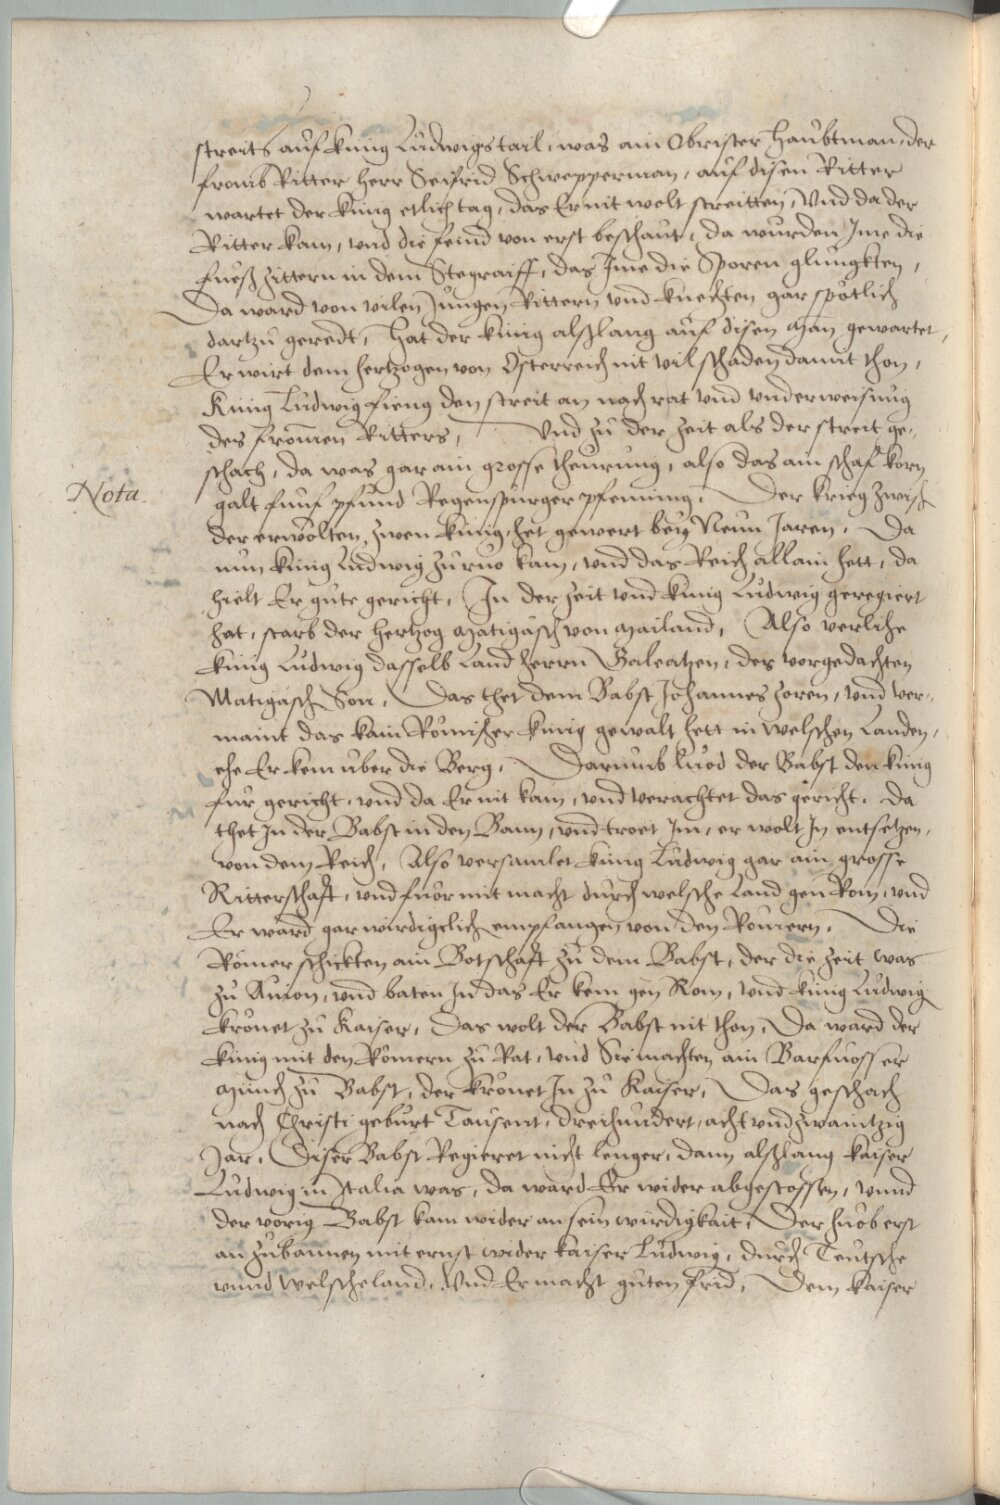 streits auf kunig Ludwigs tail, was ain Obrister Haubtman, der
fromb Ritter Herr Seifrid Schwepperman, auf disen Ritter
wartet der kunig etlich tag, das Er nit wolt streitten, Vnd da der
Ritter kam, vnd die feind von erst beschaut, da wurden Ime die
fueß zittern in dem Stegraiff, das Ime die Sporen glungkten,
Da ward von vilen Jungen Rittern vnd knechten gar spötlich
dartzu geredt, Hat der kunig alßlang auf disen man gewartet,
Er wirt dem hertzogen von Osterreich nit vil schaden damit thon,
Kunig Ludwig fieng den streit an nach rat vnd vnderweisung
des fromen Ritters, Vnd zu der zeit als der streit ge-
schach, da was gar ain grosse theurung, also das ain schaf korn
Nota.
galt funf pfund Regenspurger pfenning. Der krieg zwisch
der erwölten zwen kunig, het gewert bey Neun Jaren. Da
nun kunig Ludwig zu ruo kam, vnd das Reich allain hett, da
hielt Er gute gericht, In der zeit vnd kunig Ludwig geregiert
hat, starb der Hertzog Matigasch von Mailand, Also verlihe
kunig Ludwig dasselb Land herrn Galeatzen, des vorgedachten
Matigasch Son, Das thet dem Babst Johannes zoren, vnd ver-
maint das kain Römischer kunig gewalt hett in welschen Landen,
ehe Er kem uber die Berg, Darumb luod der Babst den kunig
fur gericht, vnd da Er nit kam, vnd verachtet das gericht, da
thet In der Babst in den Bann, vnd troet Im, er wolt In entsetzen,
von dem Reich, Also versamlet kunig Ludwig gar ain grosse
Ritterschaft, vnd fuor mit macht durch welsche Land gen Rom, vnd
Er ward gar wirdigclich empfangen von den Römern. Die
Römer schickten ain Botschaft zu dem Babst, der die zeit was
zu Auion, vnd baten In das Er kem gen Rom, vnd kunig Ludwig
krönet zu Kaiser, Das wolt der Babst nit thon, Da ward der
kunig mit den Römern zu Rat, vnd Sie machten ain Barfuosser
Munch zu Babst, der krönet In zu Kaiser, Das geschach
nach Christi geburt Tausent, dreihundert, acht vnd zwaintzig
Jar, Diser Babst Regieret nicht lenger, dann alßlang kaiser
Ludwig in Italia was, da ward Er wider abgestossen, vnnd
der vorig Babst kam wider an sein wirdigkait, Der huob erst
an zubannen mit ernst wider kaiser Ludwig, durch Teutsche
vnnd welsche land, Vnd Er macht guten frid, Dem kaiser